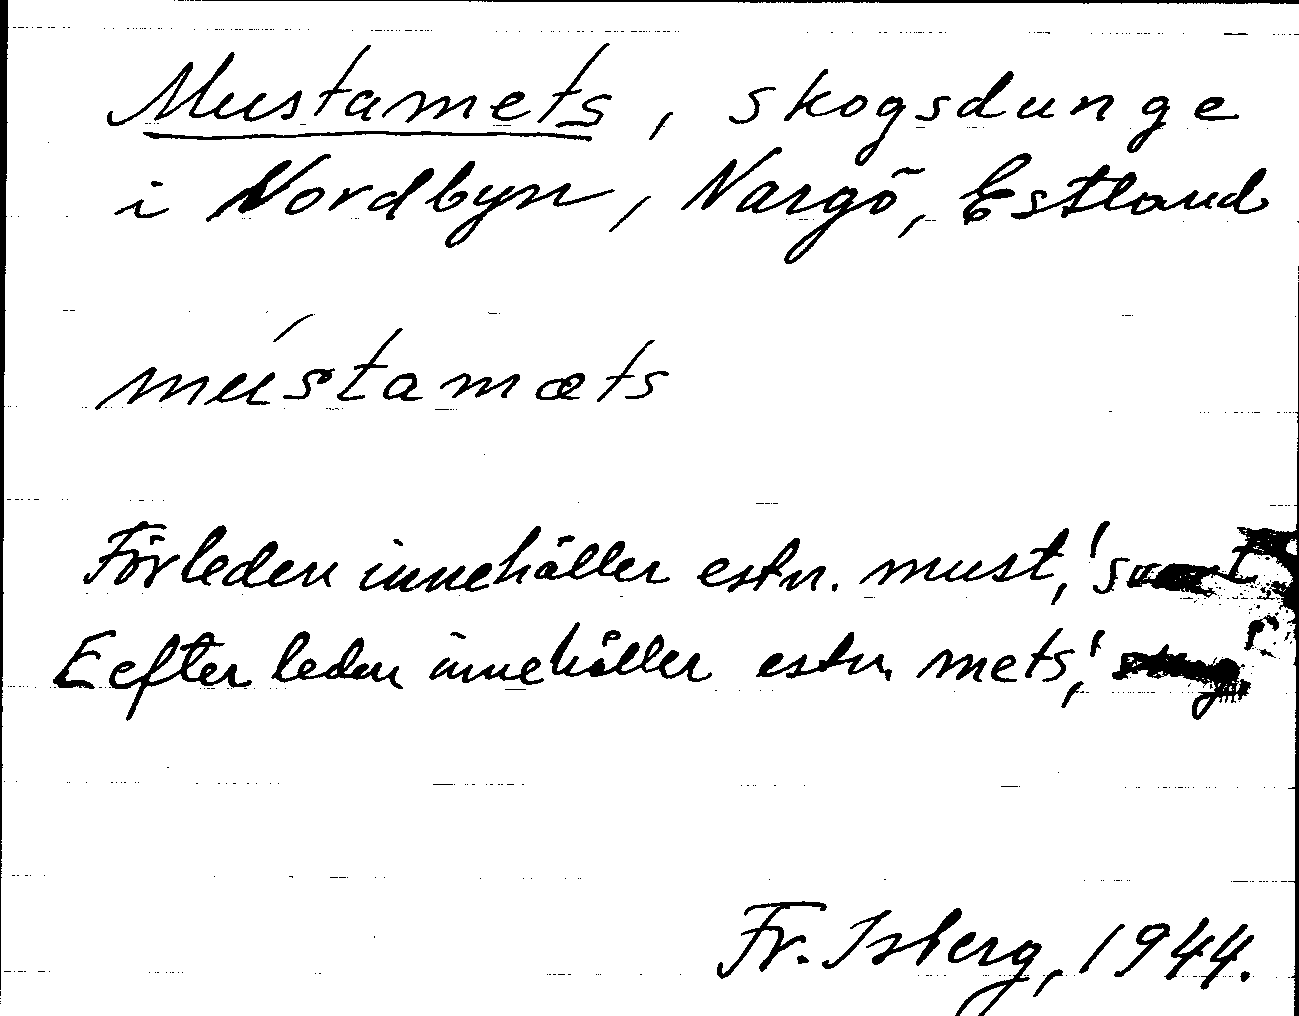 Mustamets, skogsdunge
i Nordbyn, Nargö, Estland
mústamæts
Förleden innehåller estn. must, 'svart'
Eefter leden innehåller estn. mets, 'skog'.
Fr. Isberg, 1944.